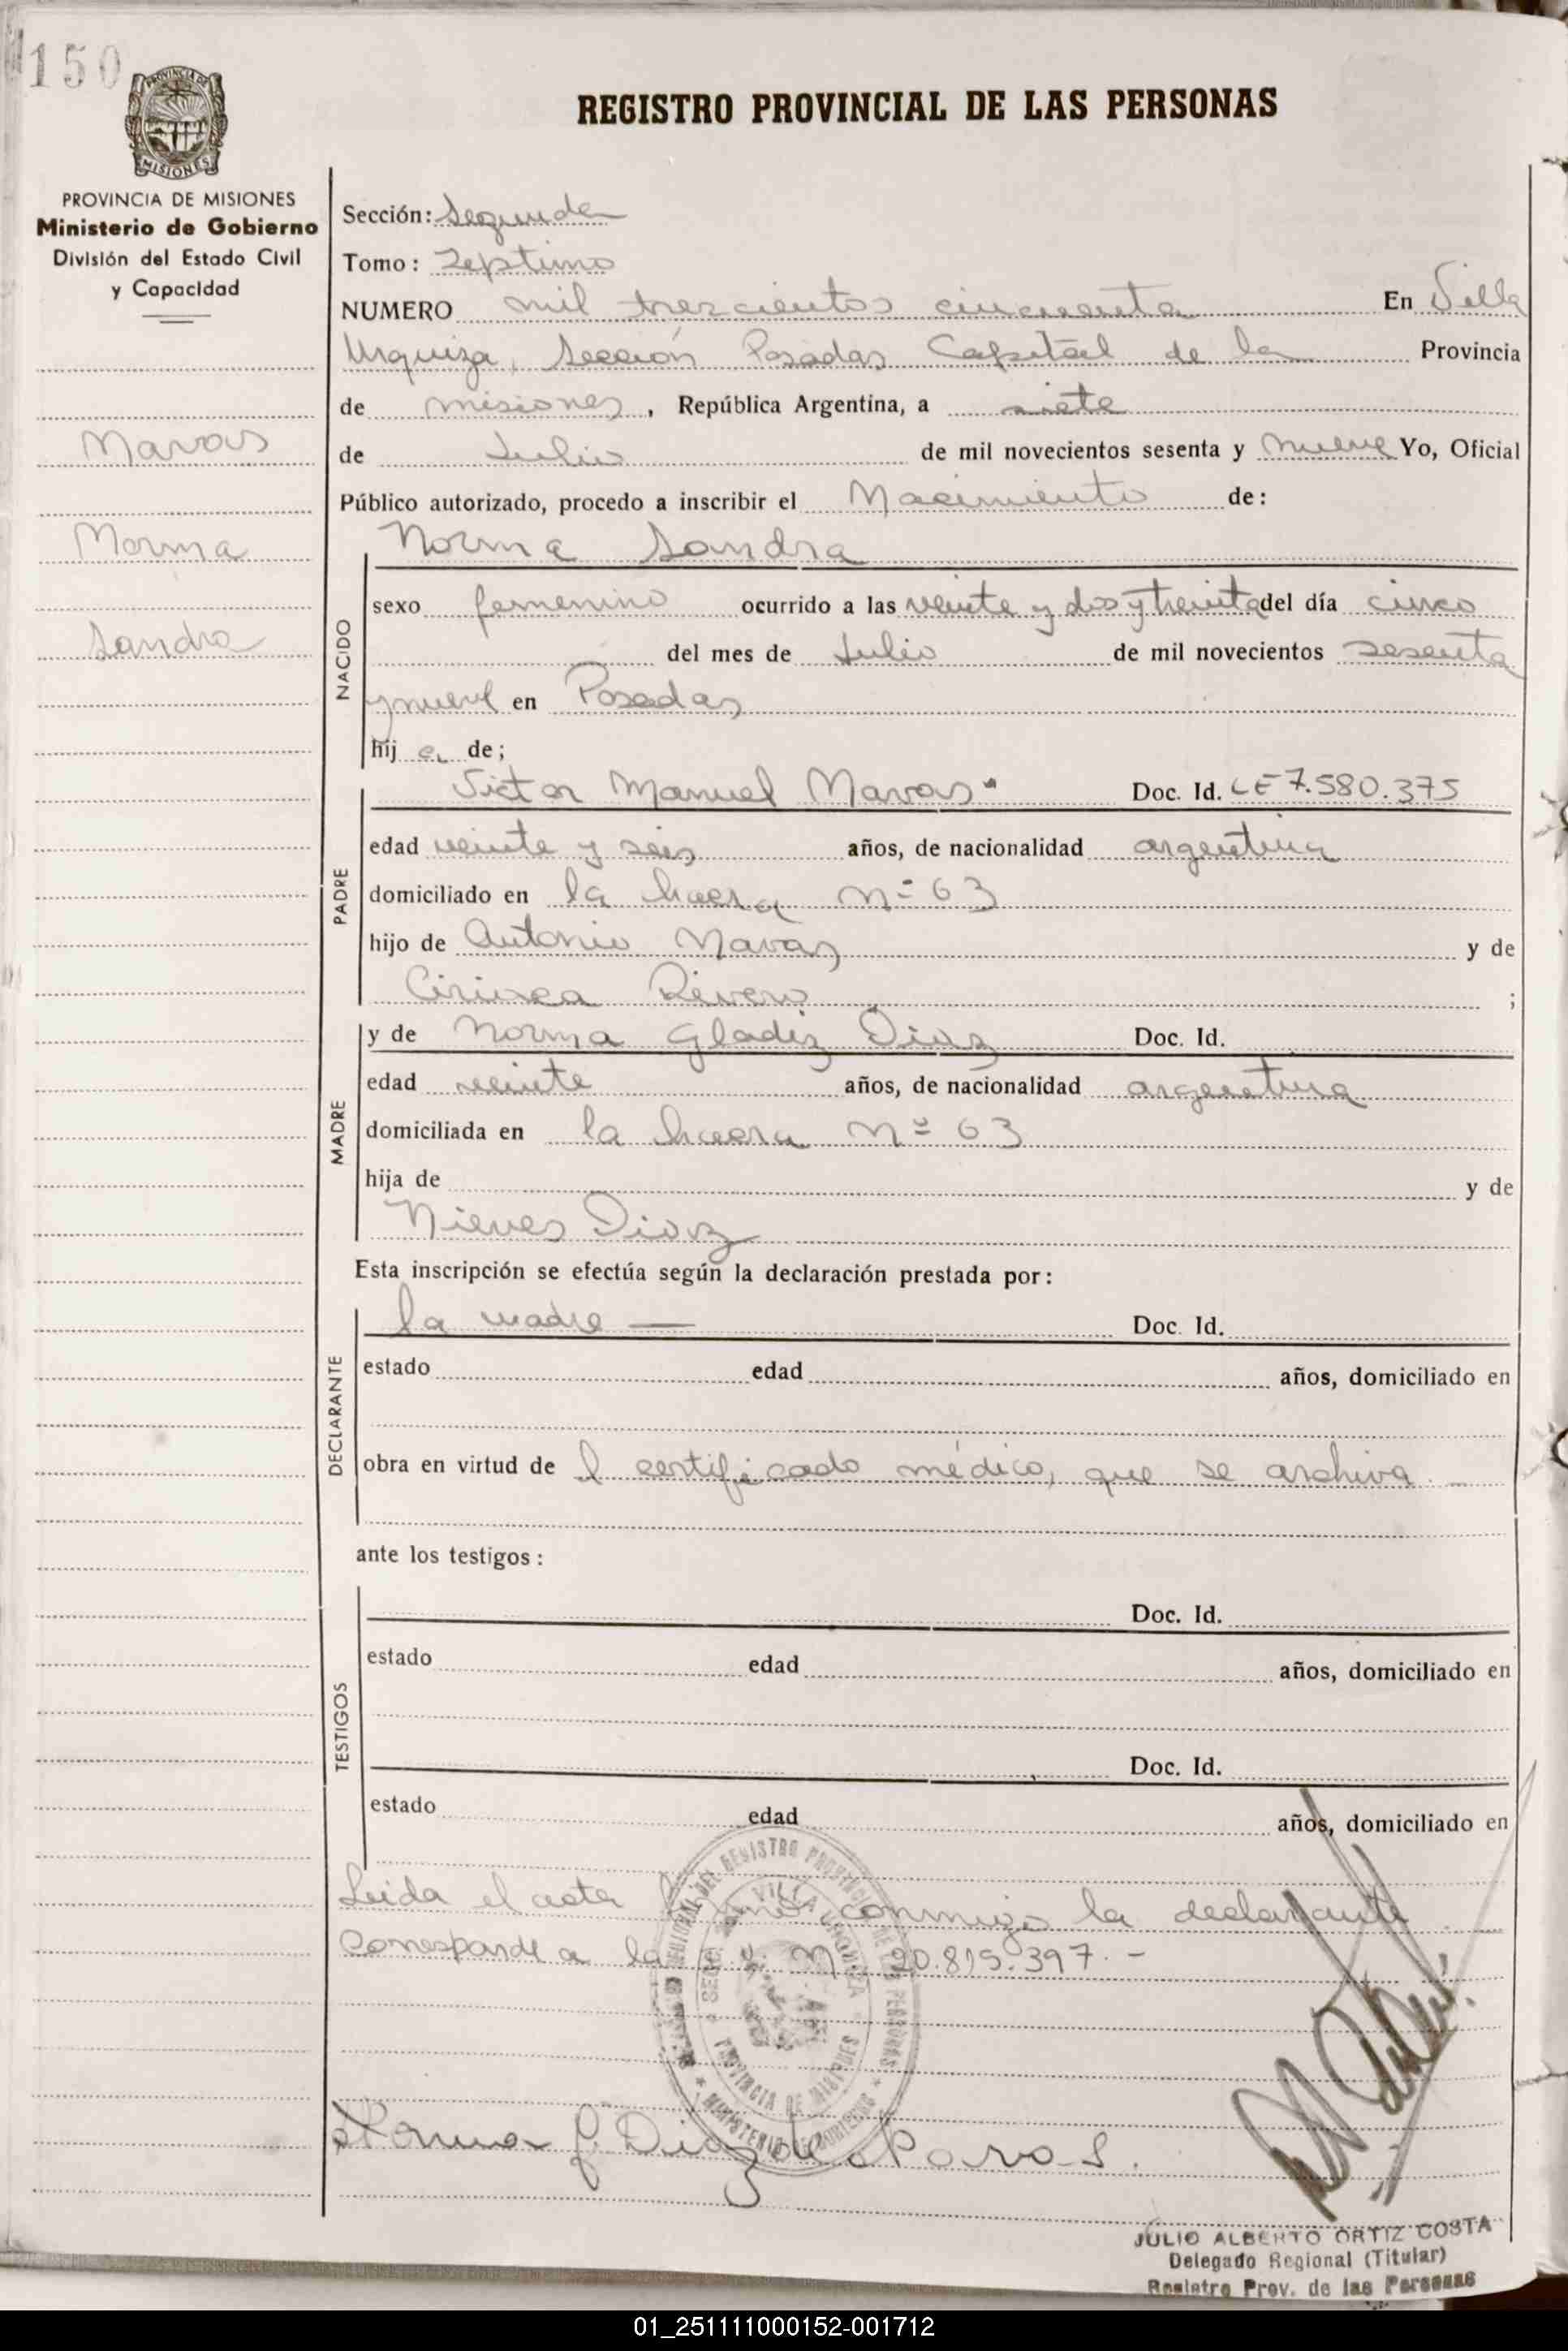 150
PROVINCIA DE
MISIONES
PROVINCIA DE MISIONES
Ministerio de Gobierno
División del Estado Civil
y Capacidad
Navas
Norma
Sandra
REGISTRO PROVINCIAL DE LAS PERSONAS
Sección: Segunda
Tomo: Septimo
NUMERO mil trescientos cincuenta En Villa
Urquiza, Sección Posadas Capital de la Provincia
de misiones, República Argentina, a siete
de Julio de mil novecientos sesenta y nueve Yo, Oficial
Público autorizado, procedo a inscribir el Nacimiento de:
Norma Sandra
NACIDO
sexo femenino ocurrido a las veinte y dos y treinta del día cinco
del mes de Julio de mil novecientos sesenta
y nueve en Posadas
hij a de;
Victor Manuel Navas Doc. Id. LE 7.580.375
PADRE
edad veinte y seis años, de nacionalidad argentina
domiciliado en la hacra Nº 63
hijo de Antonio Navas y de
Rivero ;
MADRE
y de Norma Gladiz Diaz Doc. Id.
edad veinte años, de nacionalidad argentina
domiciliada en la hacra Nº 63
hija de y de
Nieves Diaz
Esta inscripción se efectúa según la declaración prestada por:
DECLARANTE
la madre — Doc. Id.
estado edad años, domiciliado en
obra en virtud de l certificado médico, que se archiva. —
ante los testigos:
TESTIGOS
Doc. Id.
estado edad años, domiciliado en
Doc. Id.
estado edad años, domiciliado en
Leida el acta firmó conmigo la declarante. —
Corresponde a la Nº 20.815.397. -
REGIONAL DEL REGISTRO PROVINCIAL DE LAS PERSONAS
VILLA URQUIZA
PROVINCIA DE MISIONES
MINISTERIO DE GOBIERNO
Norma G. Diaz de Navas.
JULIO ALBERTO ORTIZ COSTA
Delegado Regional (Titular)
Registro Prov. de las Personas
01_251111000152-001712